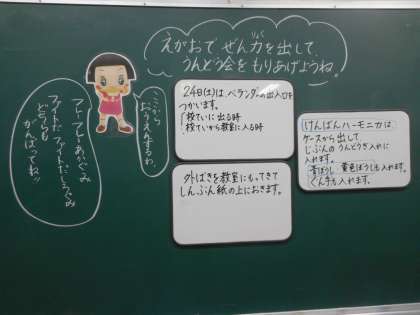 えがおで ぜん力を出して、
うんどう会を もりあげようね。
ここから
おうえんするわ。
フレーフレーあかぐみ
ファイトだ ファイトだしろぐみ
どちらも
がんばってね!!
24日(土)は、ベランダの出入口を
つかいます。
校ていに出る時
校ていから教室に入る時
外ばきを教室にもってきて
しんぶん紙の上におきます。
けんばんハーモニカは、
ケースから出して
じぶんのうんどうぎ入れに
入れます。
青ぼうし、黄色ぼうしも入れます。
ぐん手も入れます。